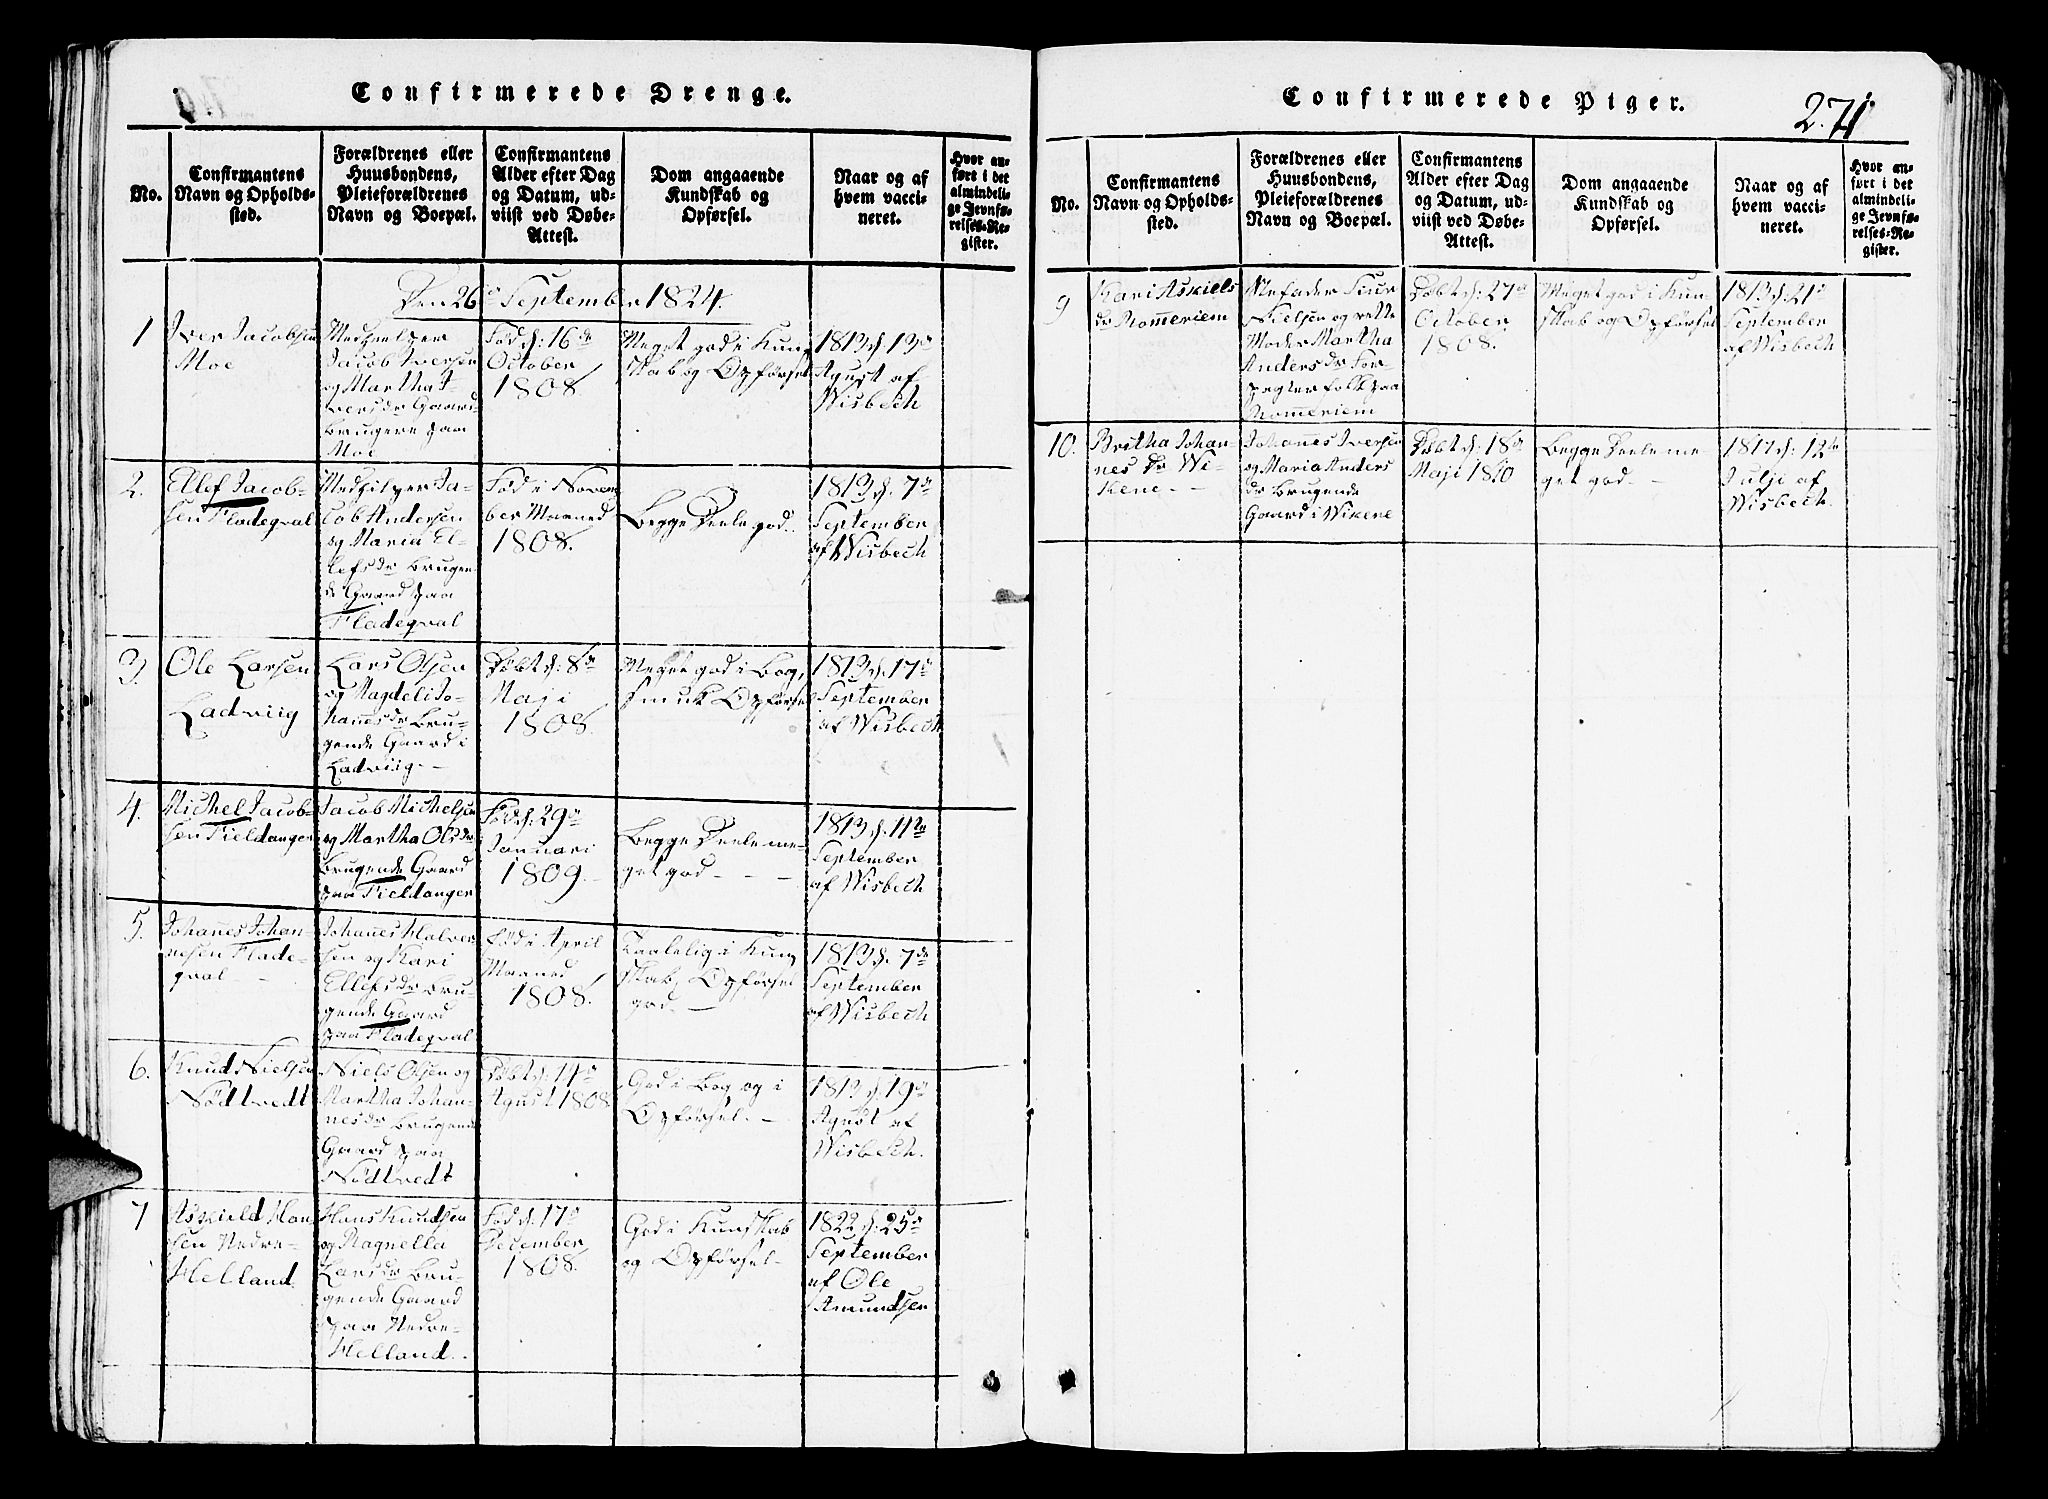 Confirmerede Drenge.
No.
Confirmantens
Navn og Opholds-
sted.
Forældrenes eller
Huusbondens,
Pleieforældrenes
Navn og Boepæl.
Confirmantens
Alder efter Dag
og Datum, ud-
viist ved Døbe-
Attest.
Dom angaaende
Kundskab og
Opførsel.
Naar og af
hvem vacci-
neret.
Hvor an-
ført i det
almindeli-
ge Jevnfø-
relses-Re-
gister.
Den 26 September 1824.
1
Iver Jacobsen
Moe
Medhielper
Jacob Iversen
og Martha I-
versdr Gaard-
brugere paa
Moe
Fød d: 16de
October
1808
Meget god i Kun
skab og Opførsel
1813 d. 13de
Agust af
Wisbech
2.
Ellef Jacob-
sen Fladeqval
Medhilper Ja-
cob Andersen
og Maria El-
lefsdr brugen-
de Gaard paa
Fladeqval
Fød i Novem
ber Maaned
1808.
Begge Deele god.
1813 d. 7de
September
af Wisbech
3.
Ole Larsen
Ladviig
Lars Olsen
og Magdeli Jo-
hanesdr bru-
gende Gaard i
Ladviig. -
Døbt d: 8de
Maji
1808.
Meget god i Bog,
smuk Opførsel
1813 d. 17de
September
af Wisbech
4.
Michel Jacob-
sen Fieldanger
Jacob Michelsen
og Martha Olsdr
brugende Gaard
paa Fieldanger
Fød d: 29de
Januari
1809. -
Begge Deele me-
get god - - -
1813 d. 11te
September
af Wisbech
5.
Johanes Johan-
nesen Flade-
qval -
Johanes Halvor
sen og Kari
Ellefsdr bru-
gende Gaard
paa Fladeqval
Fød i April
Maaned
1808.
Taalelig i Kun
skab, Opførsel
god. -
1813 d. 7de
September
af Wisbech
6.
Knud Nielsen
Nödtvedt
Niels Olsen og
Martha Johan-
nesdr brugende
Gaard paa
Nödtvedt
Døbt d: 14de
Agust 1808
God i Bog og i
Opførsel. -
1813 d. 19de
Agust af
Wisbech.
7
Askield Han
sen Nedre-
Helland.
Hans Knudsen
og Ragnella
Larsdr bru-
gende Gaard
paa Nedre-
Helland.
Fød d: 17de
December
1808.
God i Kunskab
og Opførsel-
1822 d: 25de
September
af Ole
Amundsen
Confirmerede Piger.
271
No.
Confirmantens
Navn og Opholds-
sted.
Forældrenes eller
Huusbondens,
Pleieforældrenes
Navn og Boepæl.
Confirmantens
Alder efter Dag
og Datum, ud-
viist ved Døbe-
Attest.
Dom angaaende
Kundskab og
Opførsel.
Naar og af
hvem vacci-
neret.
Hvor an-
ført i det
almindeli-
ge Jevnfø-
relses-Re-
gister.
9
Kari Askiels
dr Rommeriem
Stefader Siur
Nielsen og rette
Moder Martha
Andersdr For-
pagter folk paa
Rommeriem
Døbt d: 27de
October
1808.
Meget god i Kun
skab og Opførsel
1813 d. 21de
September
af Wisbech
10.
Britha Johan-
nes dr Wi-
kene - -
Johanes Iversen
og Maria Anders
dr brugende
Gaard i Wikene
Døbt d: 18de
Maji 1810
Begge Deele me-
get god - -
1817 d: 12te
Julji af
Wisbech.